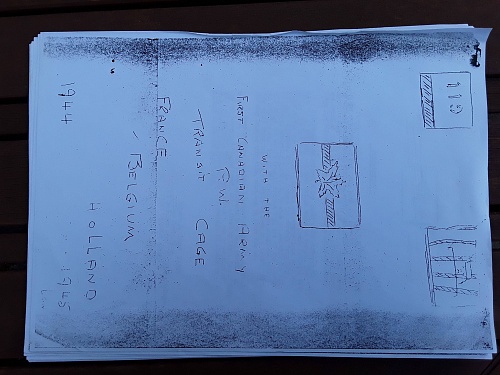 115
WITH THE
FIRST CANADIAN ARMY
P.W.
TRANSIT CAGE
FRANCE
- BELGIUM
HOLLAND
1944 ... 1945